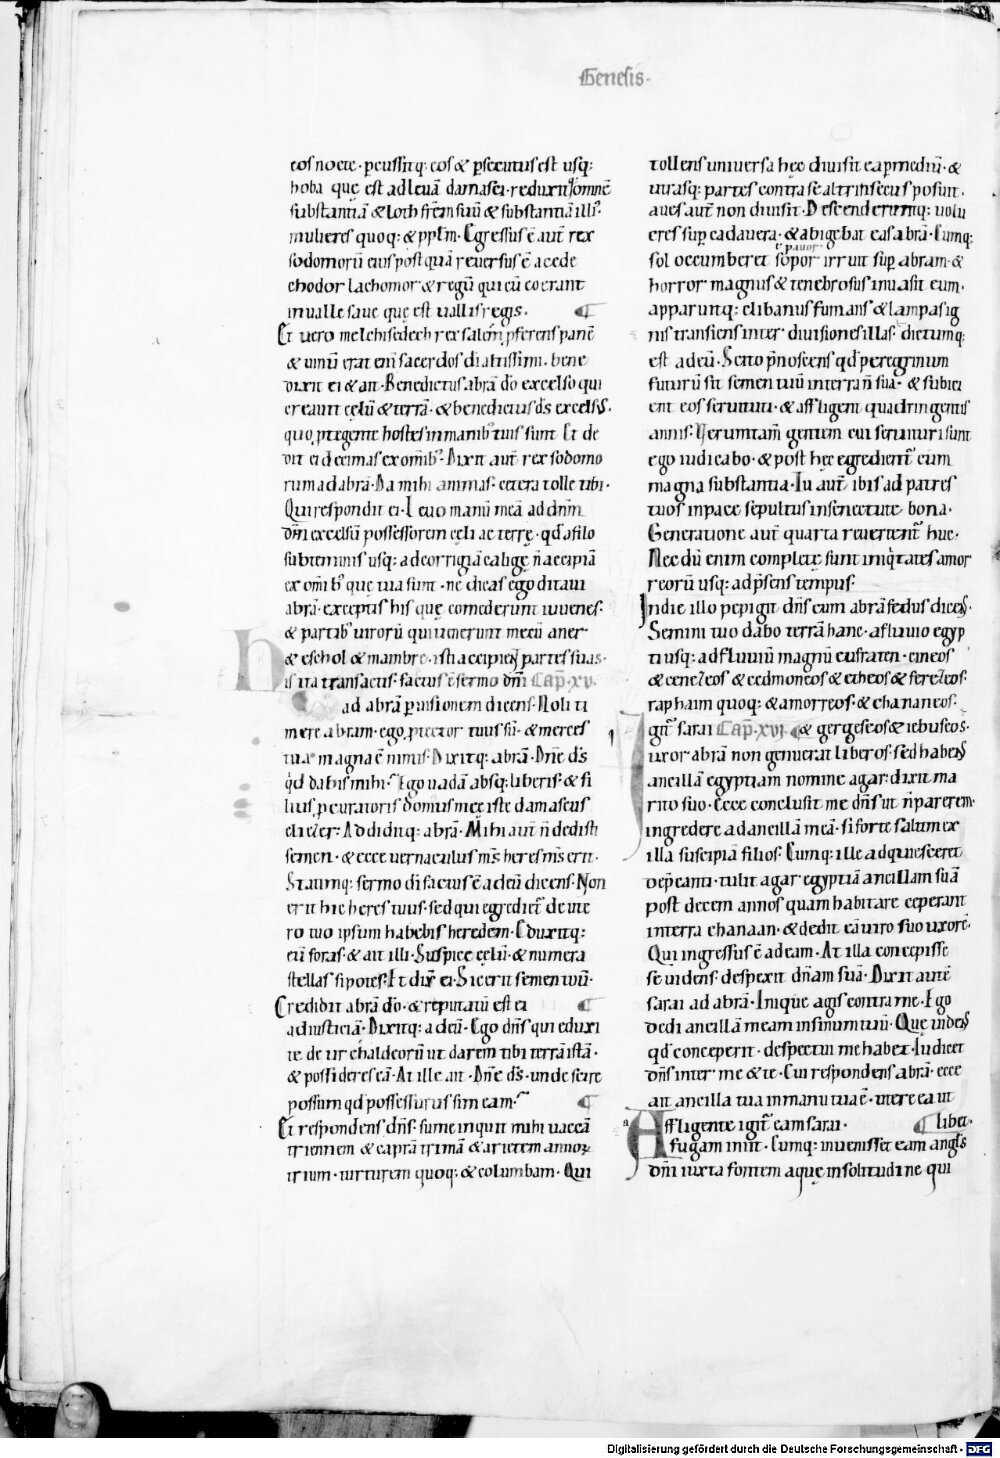 Genesis.
eos nocte· ꝑcussitq; eos & ꝑsecutus est usq;
hoba quę est ad leuā damasci· reduxitq; omnē
substantiā & loth frēm suū & substantiā illi᷒
mulieres quoq; & ppl̄m· Egressus ē aut̄ rex
sodomorū eius postquā reuersus ē a cede
chodorlachomor & regū qui cū eo erant
in ualle saue quę est uallis regis· ¶
Et uero melchisedech rex salem ꝓferens panē
& uinū erat eni᷒ sacerdos di altissimi· bene
dixit ei & ait· Benedictus abrā dō excelso qui
creauit cęlū & terrā· & benedictus ds̄ excelsus·
quo ꝓtegente hostes in manib᷒ tuis sunt Et de
dit ei decimas ex om̄ib᷒· Dixit aut̄ rex sodomo
rum ad abrā· Da mihi animas· cetera tolle tibi·
Qui respondit ei· Leuo manū meā ad dn̄m
dm̄ excelsū possessorem cęli ac terrę· qđ a filo
subteminis usq; ad corrigiā calige n̄ accipiā
ex om̄ib᷒ quę tua sunt· ne dicas ego ditaui
abrā· exceptis his quę comederunt iuuenes·
& partib᷒ uirorū qui uenerunt mecū aner
& eschol & mambre· isti accipient partes suas·
His ita transactis· factus ē sermo dn̄i Cap̄· xv·
ad abrā ꝑ uisionem dicens· Noli ti
mere abram· ego ꝓtector tuus sū· & merces
tua magna ē nimis· Dixitq; abrā· Dn̄e ds̄
qđ dabis mihi? Ego uadā absq; liberis· & fi
lius ꝓcuratoris domus meę iste damascus
eliezer· Addiditq; abrā· Mihi aut̄ n̄ dedisti
semen· & ecce uernaculus ms̄ heres ms̄ erit·
Statimq; sermo dī factus ē ad eū dicens· Non
erit hic heres tuus· sed qui egrediet᷒ de ute
ro tuo ipsum habebis heredem· Eduxitq;
eū foras· & ait illi· Suspice cęlū· & numera
stellas si potes· Et dix̄ ei· Sic erit semen tuū·
Credidit abrā dō· & reputatū est ei ¶
ad iusticiā· Dixitq; ad eū· Ego dn̄s qui eduxi
te de ur chaldeorū ut darem tibi terrā istā·
& possideres eā· At ille ait· Dn̄e ds̄· unde scire
possum qđ possessurus sim eam? ¶
Et respondens dn̄s· sume inquit mihi uaccā
triennem & caprā trimā & arietem annoꝝ
trium· turturem quoq; & columbam· Qui
tollens uniuersa hęc diuisit ea ꝑ mediū· &
utrasq; partes contra se altrinsecus posuit·
aues aut̄ non diuisit· Descenderuntq; uolu
cres suꝑ cadauera· & abigebat eas abrā· Cumq;
ł pauor
sol occumberet sopor irruit suꝑ abram· &
horror magnus & tenebrosus inuasit eum·
apparuitq; clibanus fumans & lampas ig
nis transiens inter diuisiones illas· dictumq;
est ad eū· Scito p̄noscens qđ peregrinum
futurū sit semen tuū in terra n̄ sua· & subici
ent eos seruituti· & affligent quadringentis
annis· Verumtam̄ gentem cui seruituri sunt
ego iudicabo· & post hęc egredient᷒ cum
magna substantia· Tu aut̄ ibis ad patres
tuos in pace sepultus in senectute bona·
Generatione aut̄ quarta reuertent᷒ huc·
Nec dū enim completę sunt iniq̇tates amor
reorū usq; ad p̄sens tempus·
In die illo pepigit dn̄s cum abrā fedus dicens·
Semini tuo dabo terrā hanc· a fluuio egyp
ti usq; ad fluuiū magnū eufraten· cineos
& cenezeos & cedmoneos & etheos & ferezeos·
raphaim quoq; & amorreos· & chananeos·
Igit᷒ sarai Cap̄· xvj· ¶ & gergeseos & iebuseos·
uxor abrā non genuerat liberos· sed habens
ancillā egyptiam nomine agar· dixit ma
rito suo· Ecce conclusit me dn̄s ut n̄ parerem·
ingredere ad ancillā meā· si forte saltim ex
illa suscipiā filios· Cumq; ille adquiesceret
dep̄canti· tulit agar egyptiā ancillam suā
post decem annos quam habitare ceperant
in terra chanaan· & dedit eā uiro suo uxorē·
Qui ingressus ē ad eam· At illa concepisse
se uidens· despexit dn̄am suā· Dixit autē
sarai ad abrā· Inique agis contra me· Ego
dedi ancillā meam in sinum tuū· Quę uidens
qđ conceperit· despectui me habet· Iudicet
dn̄s inter me & te· Cui respondens abrā· ecce
ait ancilla tua in manu tua ē· utere ea ut
Affligente igit᷒ eam sarai· ¶ libet·
fugam iniit· Cumq; inuenisset eam angl̄s
dn̄i iuxta fontem aquę in solitudine qui
Digitalisierung gefördert durch die Deutsche Forschungsgemeinschaft - DFG